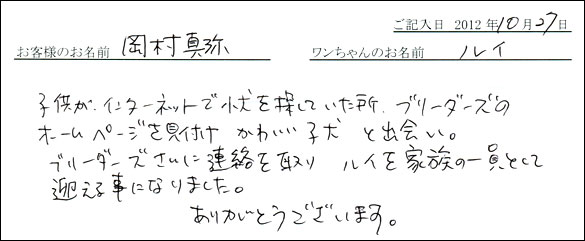 ご記入日 2012年10月27日
お客様のお名前 岡村真弥 ワンちゃんのお名前 ルイ
子供が、インターネットで小犬を探していた所、ブリーダーズの
ホームページを見付け かわいい子犬 と出会い。
ブリーダーズさんに連絡を取り ルイを家族の一員として
迎える事になりました。
ありがとうございます。